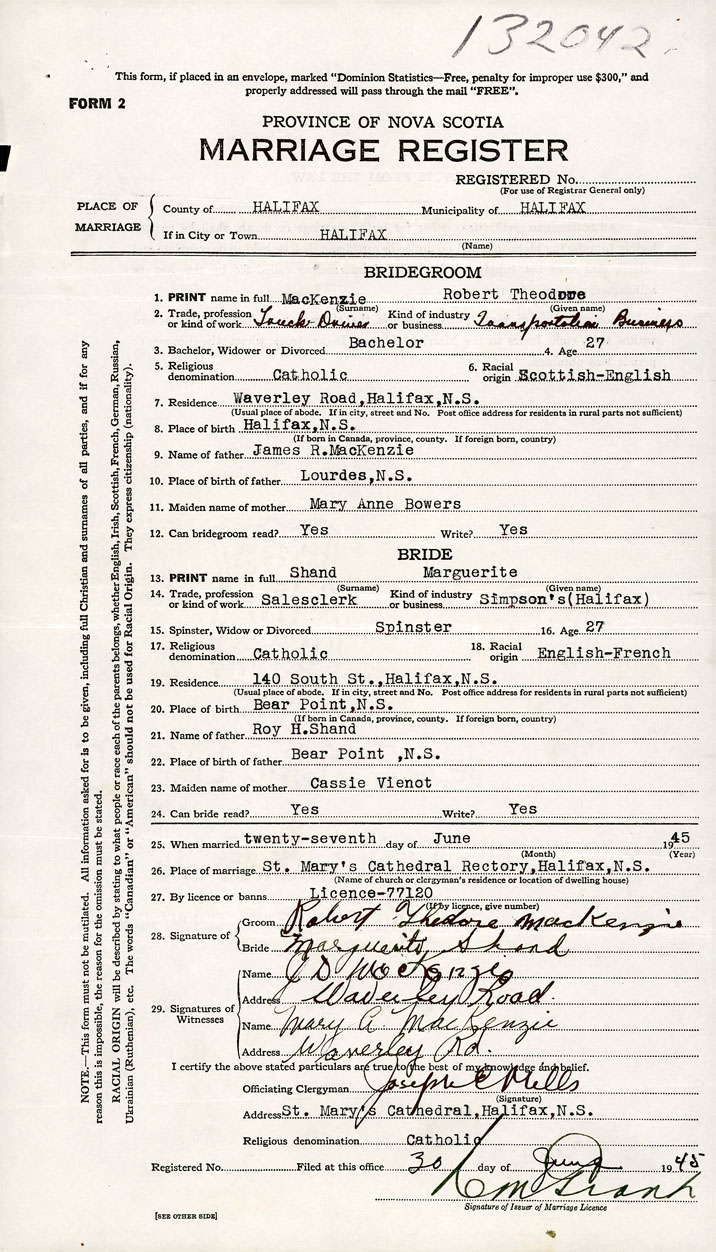 132042
This form, if placed in an envelope, marked “Dominion Statistics—Free, penalty for improper use $300,” and
properly addressed will pass through the mail “FREE”.
FORM 2
PROVINCE OF NOVA SCOTIA
MARRIAGE REGISTER
REGISTERED No.
(For use of Registrar General only)
PLACE OF MARRIAGE
County of HALIFAX Municipality of HALIFAX
If in City or Town HALIFAX
(Name)
BRIDEGROOM
1. PRINT name in full MacKenzie Robert Theodore
(Surname) (Given name)
2. Trade, profession or kind of work Truck Driver Kind of industry or business Transportation Business
3. Bachelor, Widower or Divorced Bachelor 4. Age 27
5. Religious denomination Catholic 6. Racial origin Scottish-English
7. Residence Waverley Road,Halifax,N.S.
(Usual place of abode. If in city, street and No. Post office address for residents in rural parts not sufficient)
8. Place of birth Halifax,N.S.
(If born in Canada, province, county. If foreign born, country)
9. Name of father James R.MacKenzie
10. Place of birth of father Lourdes,N.S.
11. Maiden name of mother Mary Anne Bowers
12. Can bridegroom read? Yes Write? Yes
BRIDE
13. PRINT name in full Shand Marguerite
(Surname) (Given name)
14. Trade, profession or kind of work Salesclerk Kind of industry or business Simpson's(Halifax)
15. Spinster, Widow or Divorced Spinster 16. Age 27
17. Religious denomination Catholic 18. Racial origin English-French
19. Residence 140 South St.,Halifax,N.S.
(Usual place of abode. If in city, street and No. Post office address for residents in rural parts not sufficient)
20. Place of birth Bear Point,N.S.
(If born in Canada, province, county. If foreign born, country)
21. Name of father Roy H.Shand
22. Place of birth of father Bear Point ,N.S.
23. Maiden name of mother Cassie Vienot
24. Can bride read? Yes Write? Yes
25. When married twenty-seventh day of June 1945
(Month) (Year)
26. Place of marriage St. Mary's Cathedral Rectory,Halifax,N.S.
(Name of church or clergyman's residence or location of dwelling house)
27. By licence or banns Licence-77120
(If by licence, give number)
28. Signature of
Groom Robert Thedore MacKenzie
Bride Marguerite Shand
29. Signatures of Witnesses
Name J D MacKenzie
Address Waverley Road.
Name Mary A MacKenzie
Address Waverley Rd.
I certify the above stated particulars are true to the best of my knowledge and belief.
Officiating Clergyman Joseph E Mills
(Signature)
Address St. Mary's Cathedral,Halifax,N.S.
Religious denomination Catholic
Registered No. Filed at this office 30 day of June 1945
Signature of Issuer of Marriage Licence
[SEE OTHER SIDE]
NOTE.—This form must not be mutilated. All information asked for is to be given, including full Christian and surnames of all parties, and if for any
reason this is impossible, the reason for the omission must be stated.
RACIAL ORIGIN will be described by stating to what people or race each of the parents belongs, whether English, Irish, Scottish, French, German, Russian,
Ukrainian (Ruthenian), etc. The words “Canadian” or “American” should not be used for Racial Origin. They express citizenship (nationality).